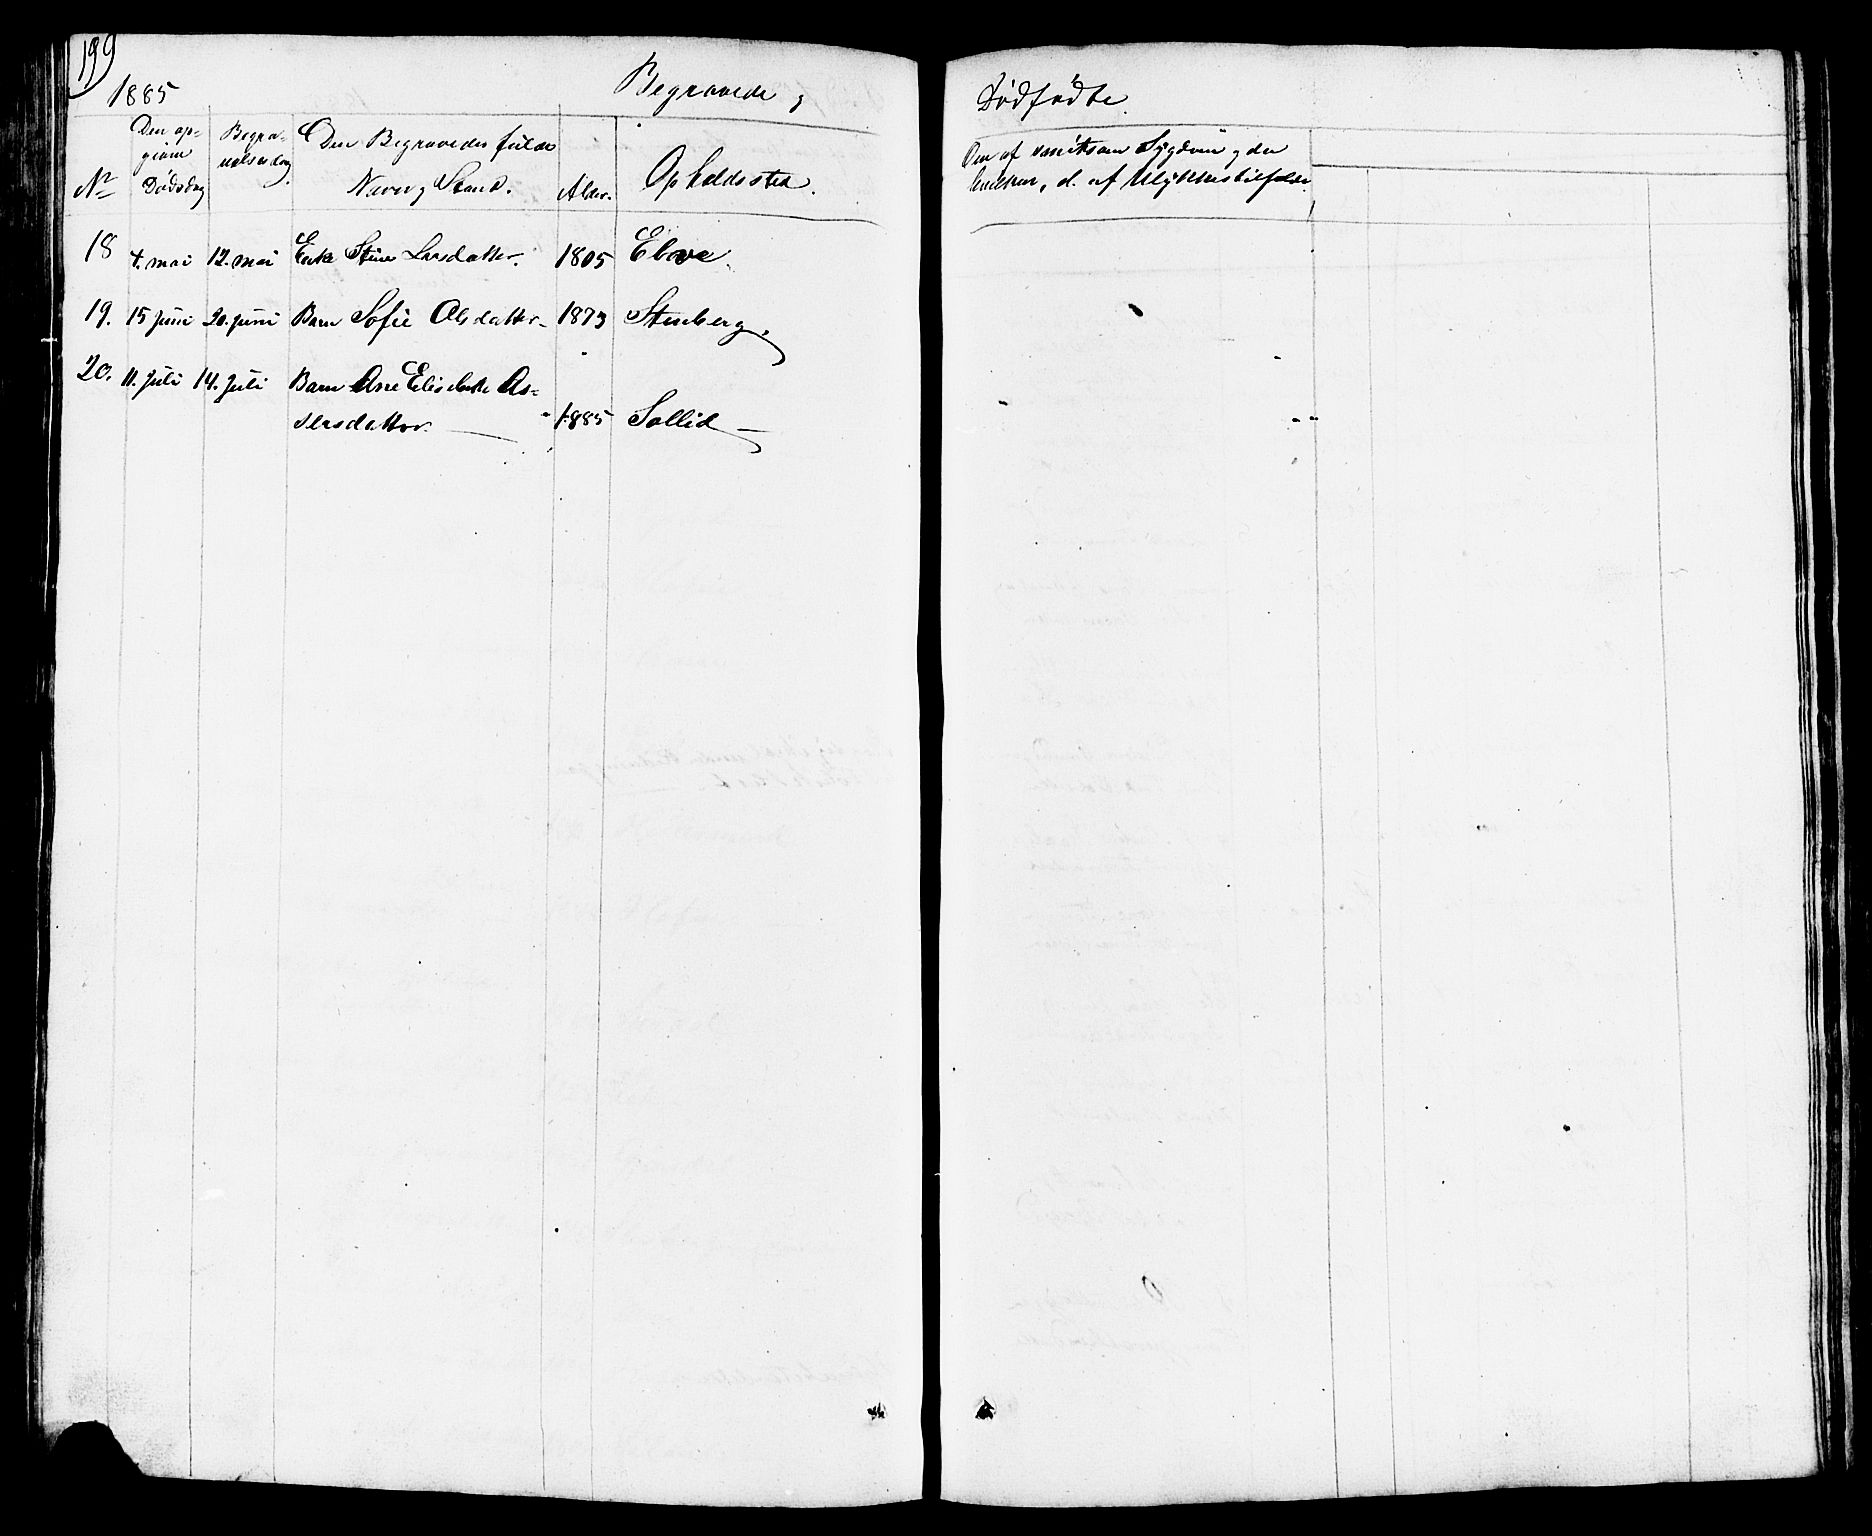 199
1885
Begravede og Dødfødte.
No
Den op-
givne
Dødsdag
Begra-
velsesdag.
Den Begravedes fulde
Navn og Stand.
Alder.
Opholdssted.
Om af smitsom Sygdom og da
hvilken, d. af Ulykkestilfælde
18 4. mai 12. mai Enke Stine Larsdatter. 1805
19. 15 juni 20. juni Barn Sofie Olsdatter 1873 Stenberg.
20. 11. juli 14. juli Barn Ane Elisabethe As-
lersdatter. 1885 Sollid